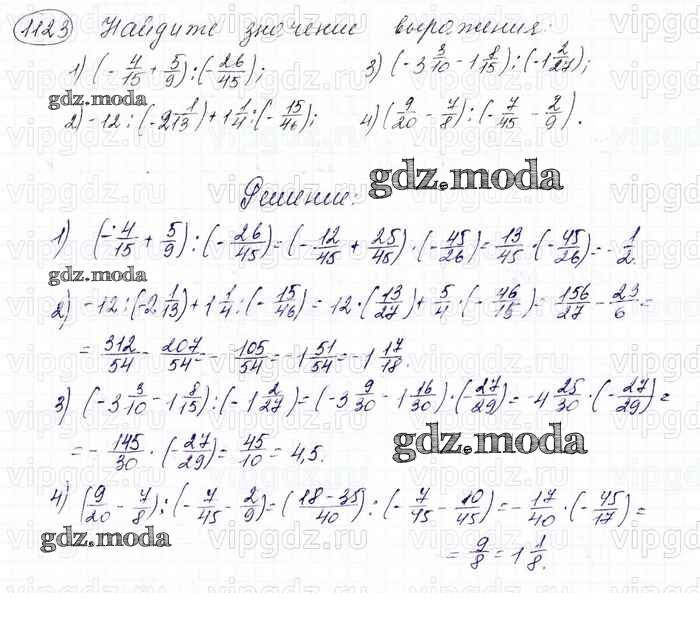 1123 Найдите значение выражения:
1) (-4/15 + 5/9) : (-26/45); 3) (-3 3/10 - 1 8/15) : (-1 2/27);
gdz.moda
2) -12 : (-2 1/13) + 1 1/4 : (-15/46); 4) (9/20 - 7/8) : (-7/45 - 2/9).
Решение:
gdz.moda
1) (-4/15 + 5/9) : (-26/45) = (-12/45 + 25/45) · (-45/26) = 13/45 · (-45/26) = -1/2.
gdz.moda
2) -12 : (-2 1/13) + 1 1/4 : (-15/46) = 12 · (13/27) + 5/4 · (-46/15) = 156/27 - 23/6 =
= 312/54 - 207/54 = - 105/54 = -1 51/54 = -1 17/18.
3) (-3 3/10 - 1 8/15) : (-1 2/27) = (-3 9/30 - 1 16/30) · (-27/29) = -4 25/30 · (-27/29) =
= -145/30 · (-27/29) = 45/10 = 4,5.
gdz.moda
4) (9/20 - 7/8) : (-7/45 - 2/9) = (18-35/40) : (-7/45 - 10/45) = -17/40 · (-45/17) =
gdz.moda
= 9/8 = 1 1/8.